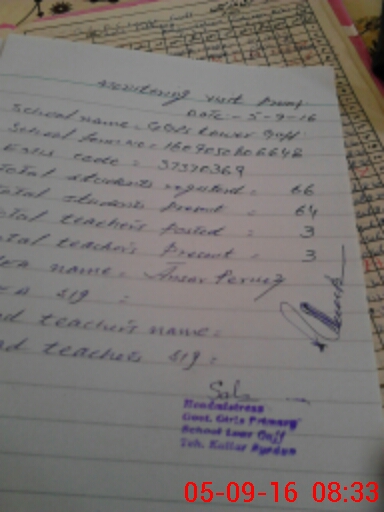 Monitoring visit Proof
Date:- 5-9-16
School name = GGPS Lower Guff
School
code = 37370369
Total students registerd = 66
total students present = 64
otal teachers posted = 3
otal teachers present = 3
name = Ansar Pervez
sig :
d teacher's name:
d teacher's sig:
Headmistress
Govt. Girls Primary
School Loor Guff
Teh. Kallar Syedan
05-09-16 08:33